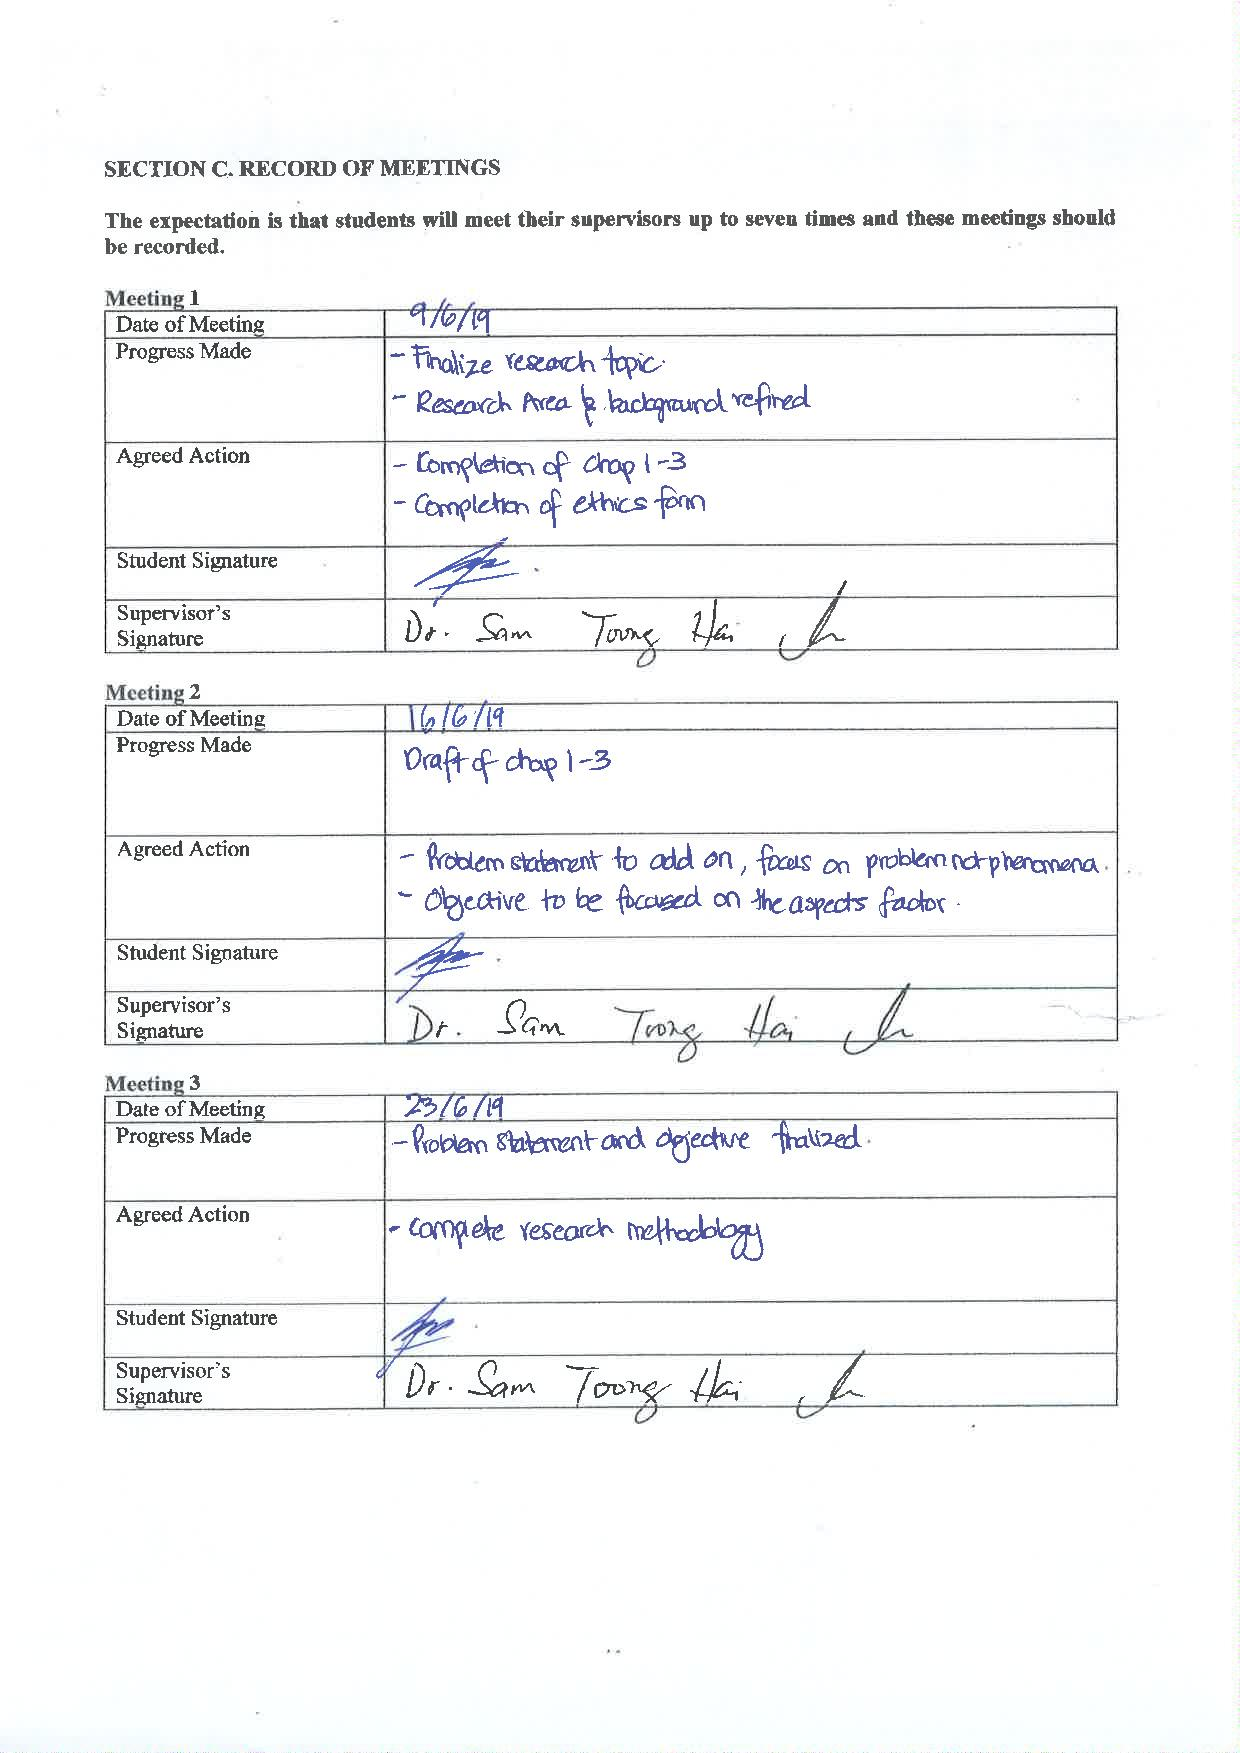 SECTION C. RECORD OF MEETINGS
The expectation is that students will meet their supervisors up to seven times and these meetings should
be recorded.
Meeting 1
Date of Meeting 9/6/19
Progress Made - Finalize research topic.
- Research Area & background refined
Agreed Action - Completion of chap 1-3
- Completion of ethics form
Student Signature
Supervisor's
Signature Dr. Sam Toong Hai
Meeting 2
Date of Meeting 16/6/19
Progress Made Draft of chap 1-3
Agreed Action - Problem statement to add on, focus on problem not phenomena.
- Objective to be focused on the aspects factor.
Student Signature
Supervisor's
Signature Dr. Sam Toong Hai
Meeting 3
Date of Meeting 23/6/19
Progress Made - Problem statement and objective finalized.
Agreed Action - Complete research methodology
Student Signature
Supervisor's
Signature Dr. Sam Toong Hai